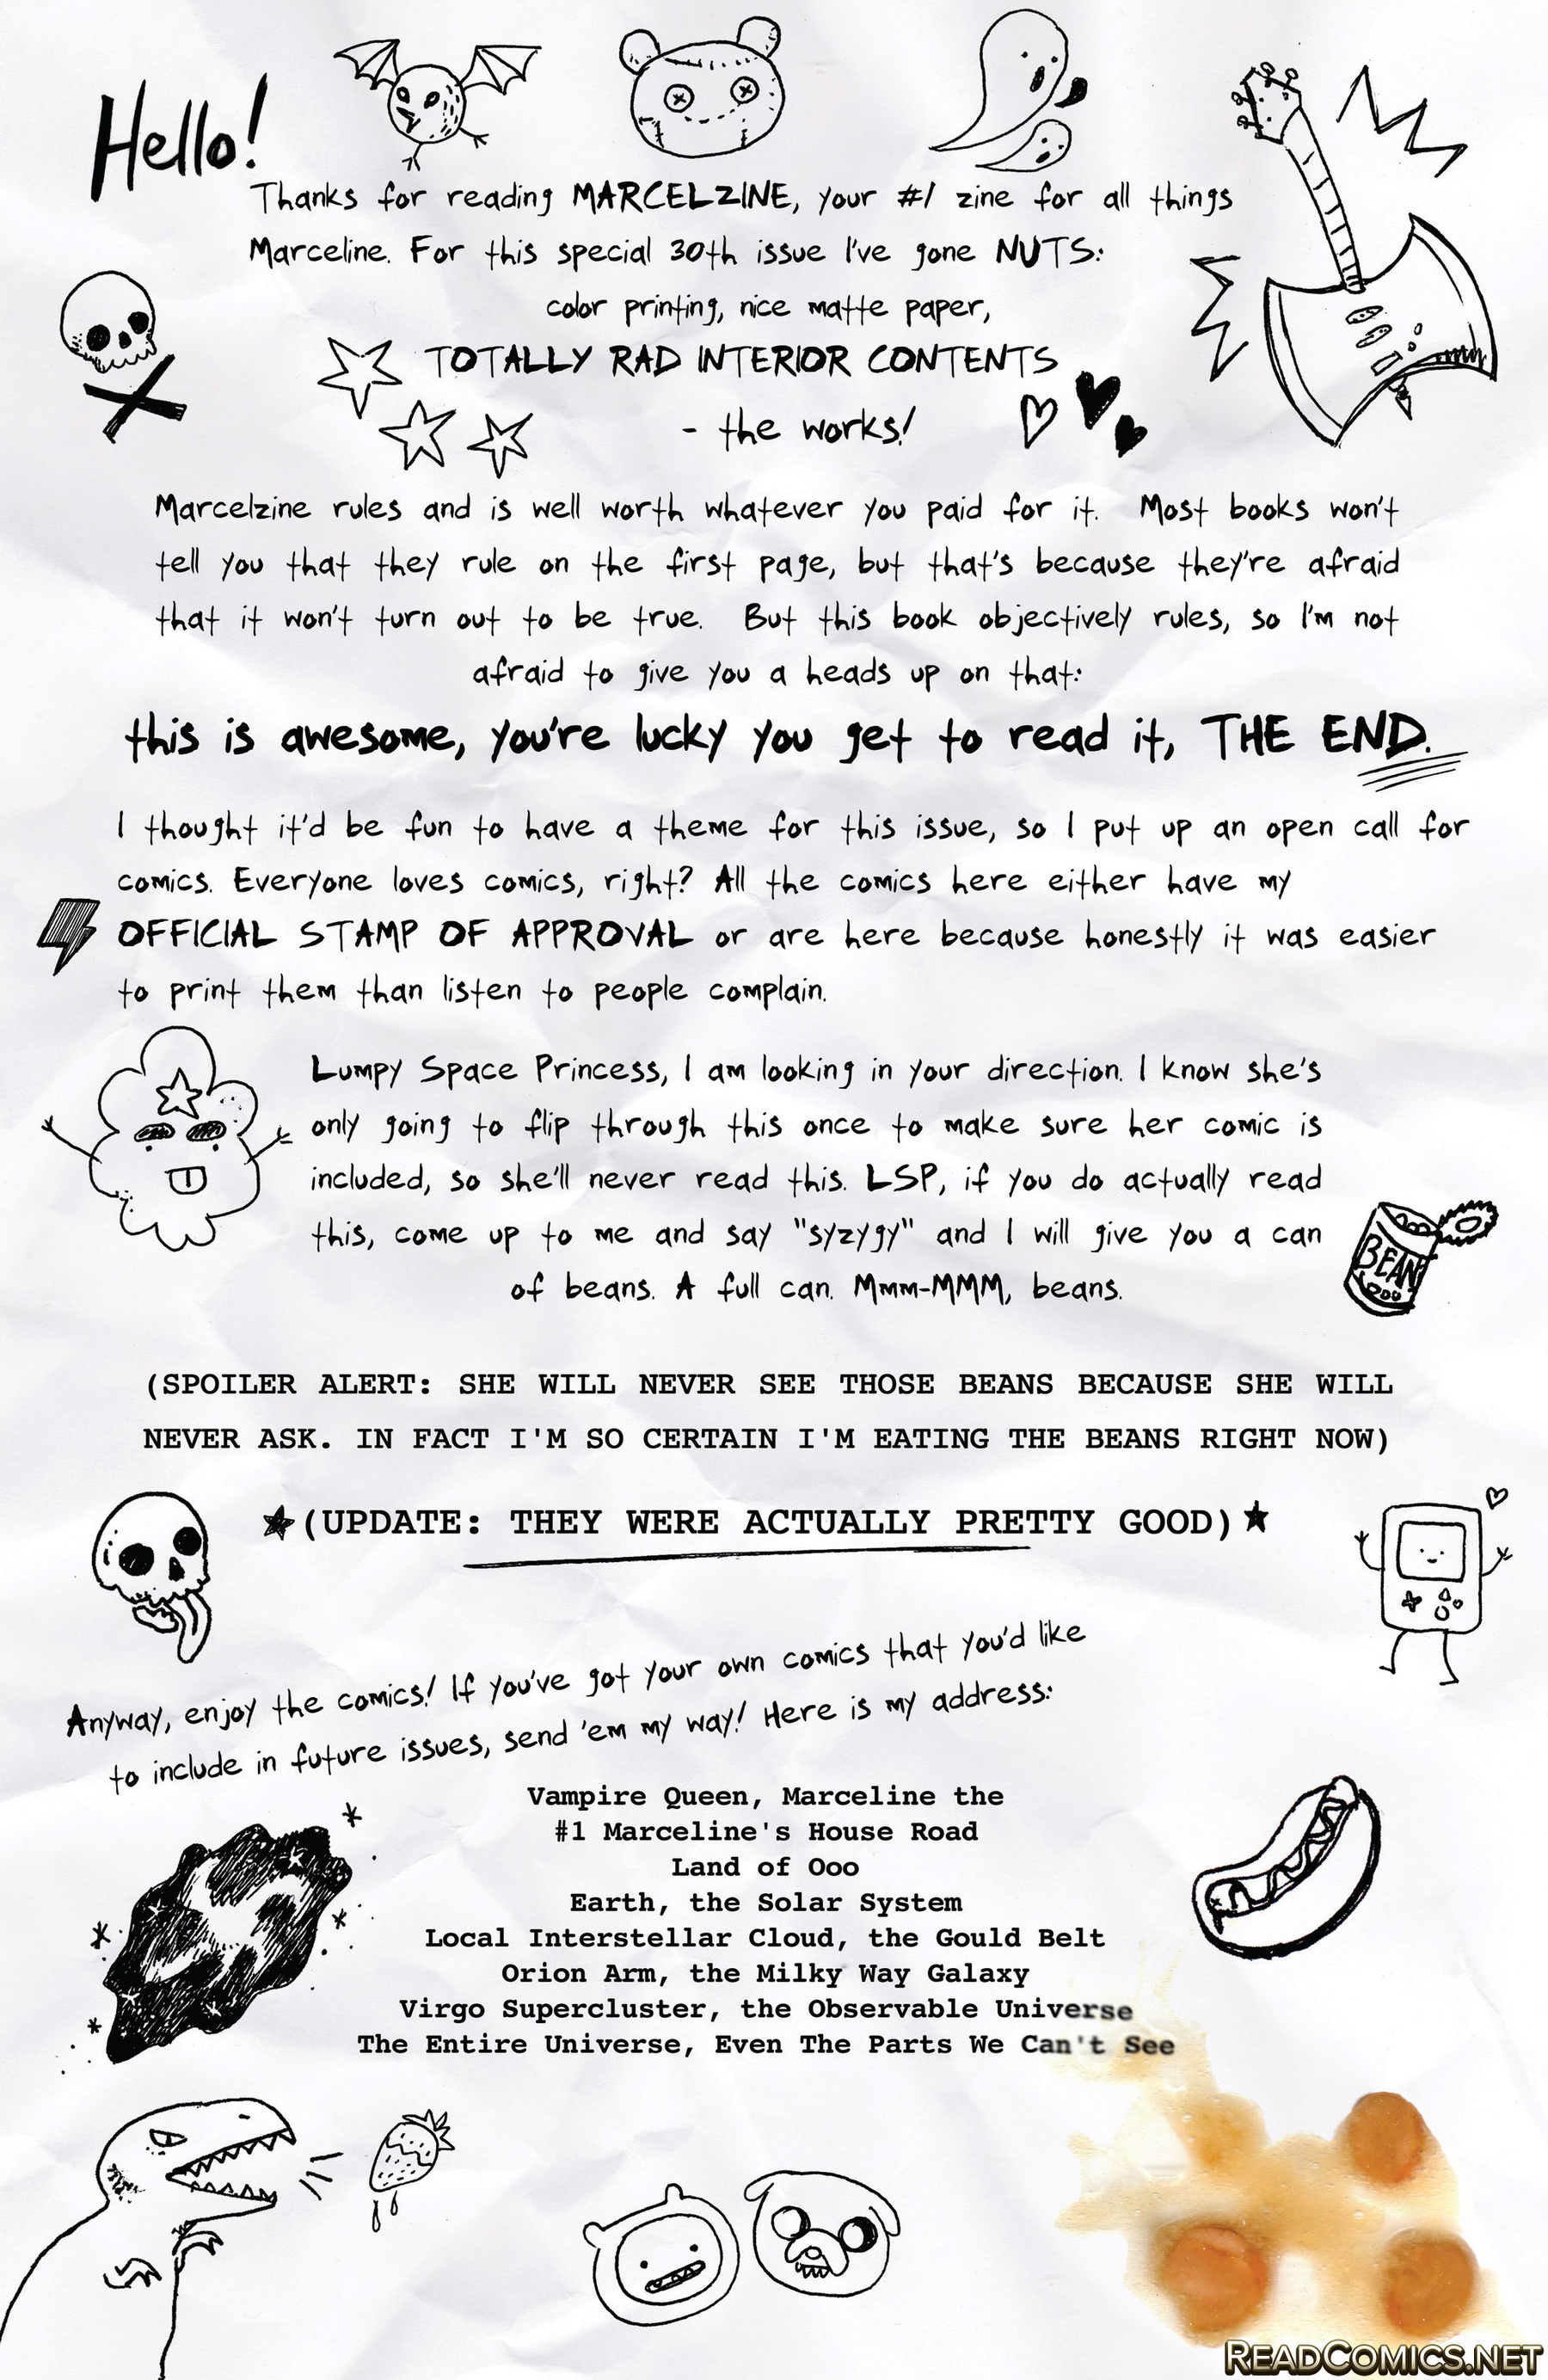 Hello!
Thanks for reading MARCELZINE, your #1 zine for all things
Marceline. For this special 30th issue I've gone NUTS:
color printing, nice matte paper,
TOTALLY RAD INTERIOR CONTENTS
- the works!
Marcelzine rules and is well worth whatever you paid for it. Most books won't
tell you that they rule on the first page, but that's because they're afraid
that it won't turn out to be true. But this book objectively rules, so I'm not
afraid to give you a heads up on that:
this is awesome, you're lucky you get to read it, THE END.
I thought it'd be fun to have a theme for this issue, so I put up an open call for
comics. Everyone loves comics, right? All the comics here either have my
OFFICIAL STAMP OF APPROVAL or are here because honestly it was easier
to print them than listen to people complain.
Lumpy Space Princess, I am looking in your direction. I know she's
only going to flip through this once to make sure her comic is
included, so she'll never read this. LSP, if you do actually read
this, come up to me and say "syzygy" and I will give you a can
of beans. A full can. Mmm-MMM, beans.
BEAN
(SPOILER ALERT: SHE WILL NEVER SEE THOSE BEANS BECAUSE SHE WILL
NEVER ASK. IN FACT I'M SO CERTAIN I'M EATING THE BEANS RIGHT NOW)
(UPDATE: THEY WERE ACTUALLY PRETTY GOOD)
Anyway, enjoy the comics! If you've got your own comics that you'd like
to include in future issues, send 'em my way! Here is my address:
Vampire Queen, Marceline the
#1 Marceline's House Road
Land of Ooo
Earth, the Solar System
Local Interstellar Cloud, the Gould Belt
Orion Arm, the Milky Way Galaxy
Virgo Supercluster, the Observable Universe
The Entire Universe, Even The Parts We Can't See
READCOMICS.NET